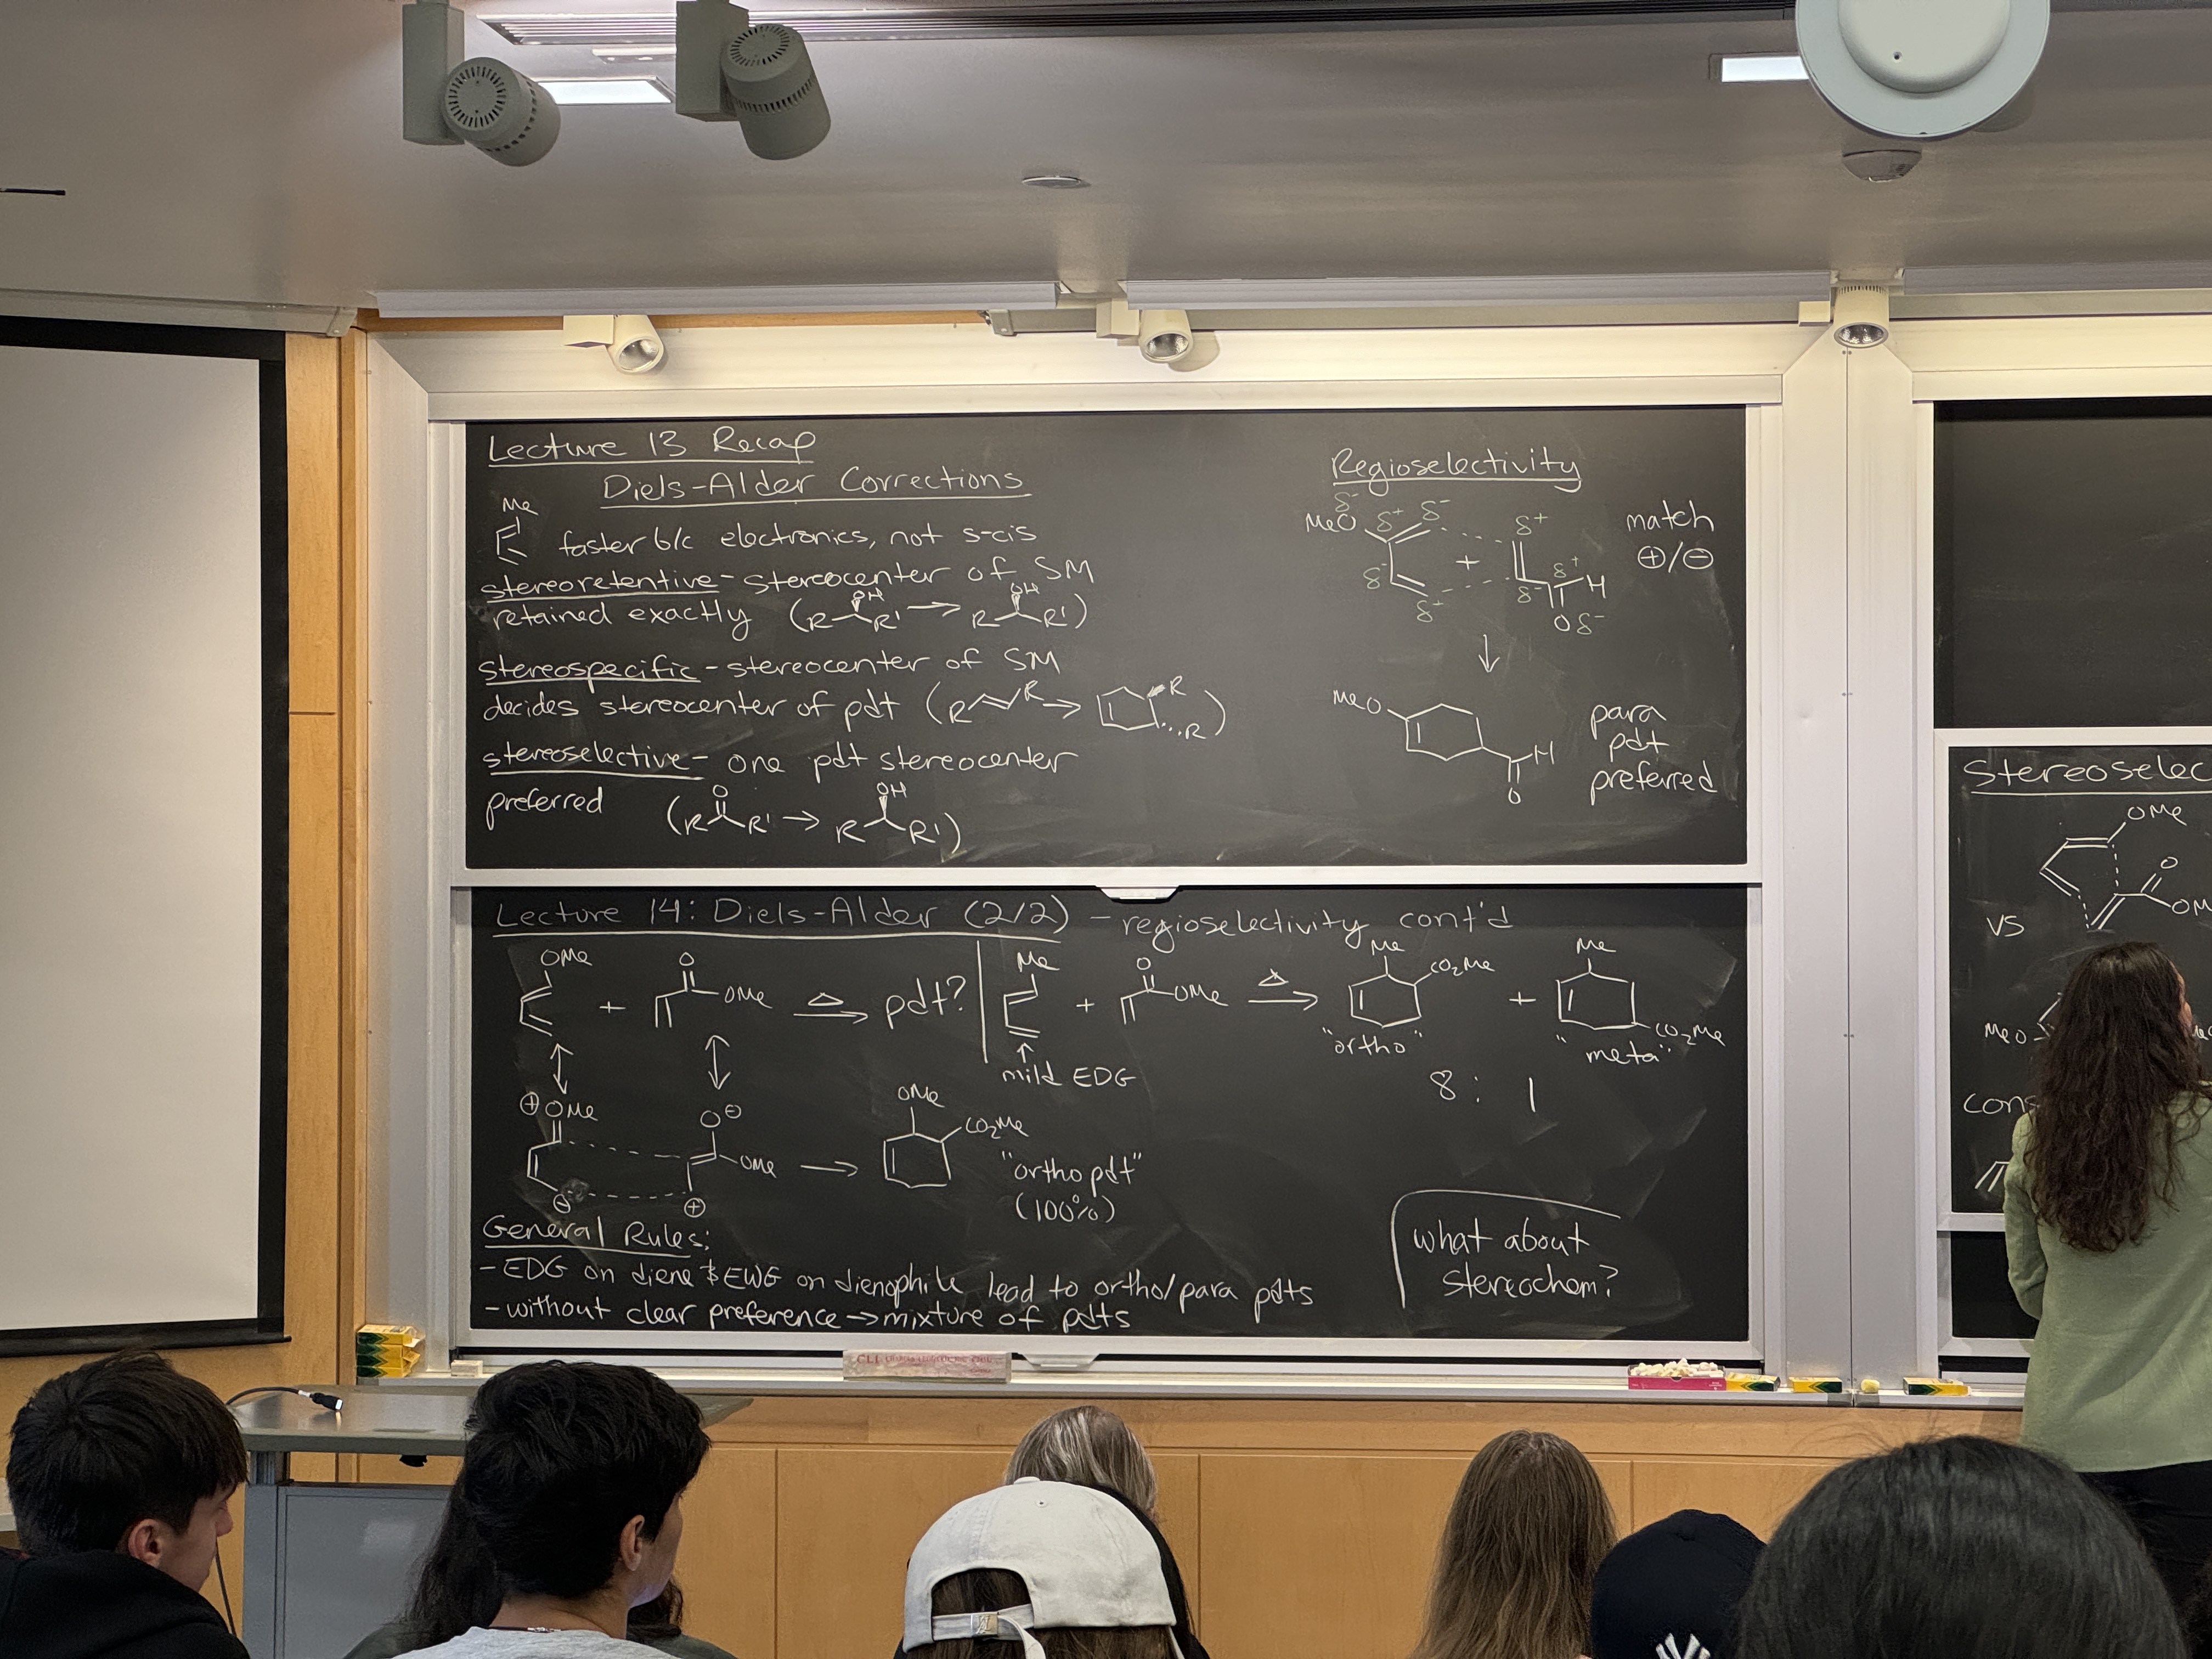 Lecture 13 Recap
Diels-Alder Corrections
Me
faster b/c electronics, not s-cis
stereoretentive - stereocenter of SM
retained exactly (R OH R' → R OH R')
stereospecific - stereocenter of SM
decides stereocenter of pdt (R R → R R)
stereoselective - one pdt stereocenter
preferred (R O R' → R OH R')
Regioselectivity
δ-
MeO δ+ δ- δ+ match
+ ⊕/⊖
δ- δ+ H
δ+ δ-
O δ-
↓
MeO
H
O
para
pdt
preferred
Lecture 14: Diels-Alder (2/2) - regioselectivity cont'd
OMe + O OMe Δ → pdt?
Me + O OMe Δ → Me CO2Me + Me CO2Me
"ortho" "meta"
↑
mild EDG
8 : 1
⊕OMe O⊖ OMe → OMe CO2Me
⊖ ⊕
"ortho pdt"
(100%)
General Rules:
- EDG on diene & EWG on dienophile lead to ortho/para pdts
- without clear preference → mixture of pdts
what about
stereochem?
Stereoselec
OMe
O
OM
vs
MeO
con